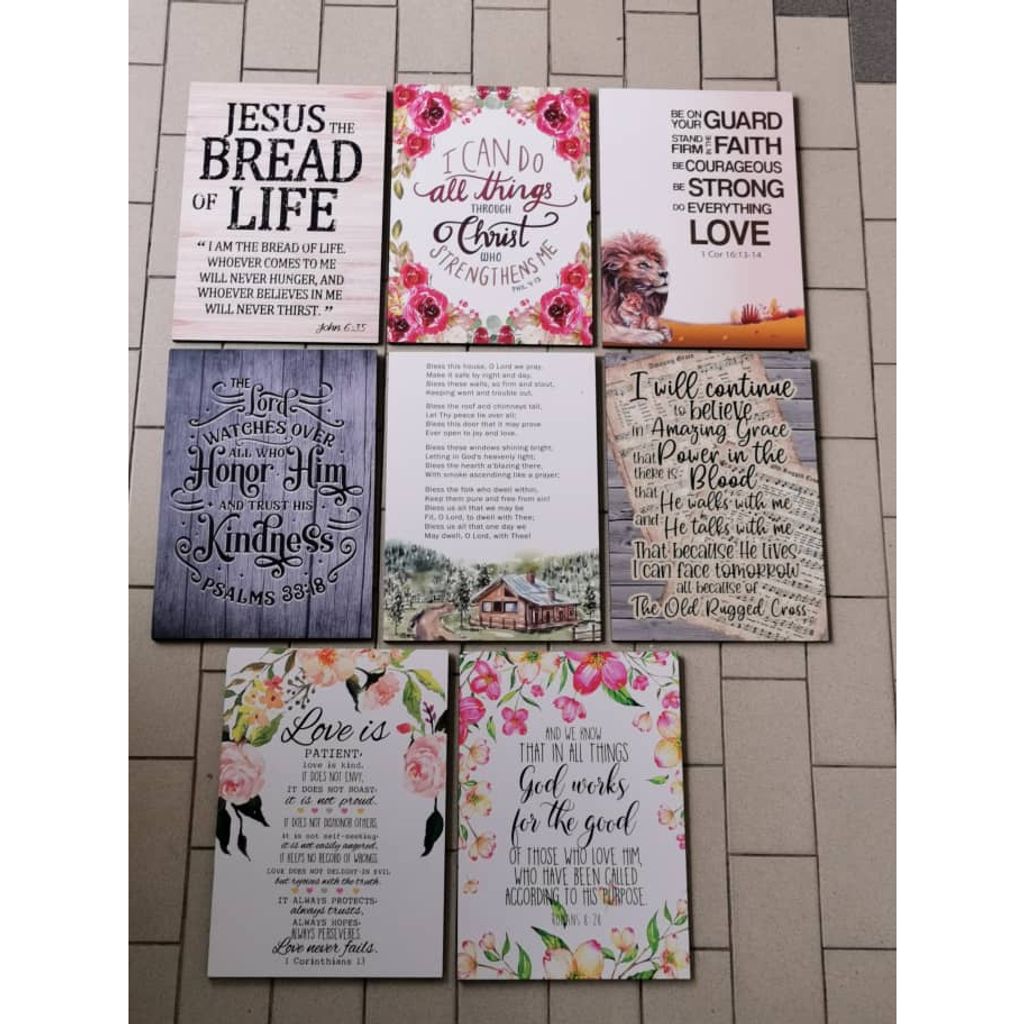 JESUS THE
BREAD
OF LIFE
“ I AM THE BREAD OF LIFE.
WHOEVER COMES TO ME
WILL NEVER HUNGER, AND
WHOEVER BELIEVES IN ME
WILL NEVER THIRST. ”
John 6:35
I CAN DO
all things
THROUGH
Christ
WHO
STRENGTHENS ME
PHIL 4:13
BE ON YOUR GUARD
STAND FIRM IN THE FAITH
BE COURAGEOUS
BE STRONG
DO EVERYTHING
LOVE
1 Cor 16:13-14
THE
Lord
WATCHES OVER
ALL WHO
Honor Him
AND TRUST HIS
Kindness
PSALMS 33:18
Bless this house, O Lord we pray.
Make it safe by night and day.
Bless these walls, so firm and stout,
Keeping want and trouble out.
Bless the roof and chimneys tall,
Let Thy peace lie over all;
Bless this door that it may prove
Ever open to joy and love.
Bless these windows shining bright,
Letting in God's heavenly light;
Bless the hearth a'blazing there,
With smoke ascendinng like a prayer;
Bless the folk who dwell within,
Keep them pure and free from sin!
Bless us all that we may be
Fit, O Lord, to dwell with Thee;
Bless us all that one day we
May dwell, O Lord, with Thee!
Amazing Grace
I will continue
to believe
in Amazing Grace
that Power in the
there is: Blood
that He walks with me
and He talks with me
That because He lives
I can face tomorrow
all because of
The Old Rugged Cross
Love is
PATIENT,
love is kind.
IT DOES NOT ENVY,
IT DOES NOT BOAST,
it is not proud.
IT DOES NOT DISHONOR OTHERS,
it is not self-seeking,
it is not easily angered,
IT KEEPS NO RECORD OF WRONGS.
LOVE DOES NOT DELIGHT IN EVIL
but rejoices with the truth.
IT ALWAYS PROTECTS,
always trusts,
ALWAYS HOPES,
ALWAYS PERSEVERES.
Love never fails.
1 Corinthians 13
AND WE KNOW
THAT IN ALL THINGS
God works
for the good
OF THOSE WHO LOVE HIM,
WHO HAVE BEEN CALLED
ACCORDING TO HIS PURPOSE.
ROMANS 8:28